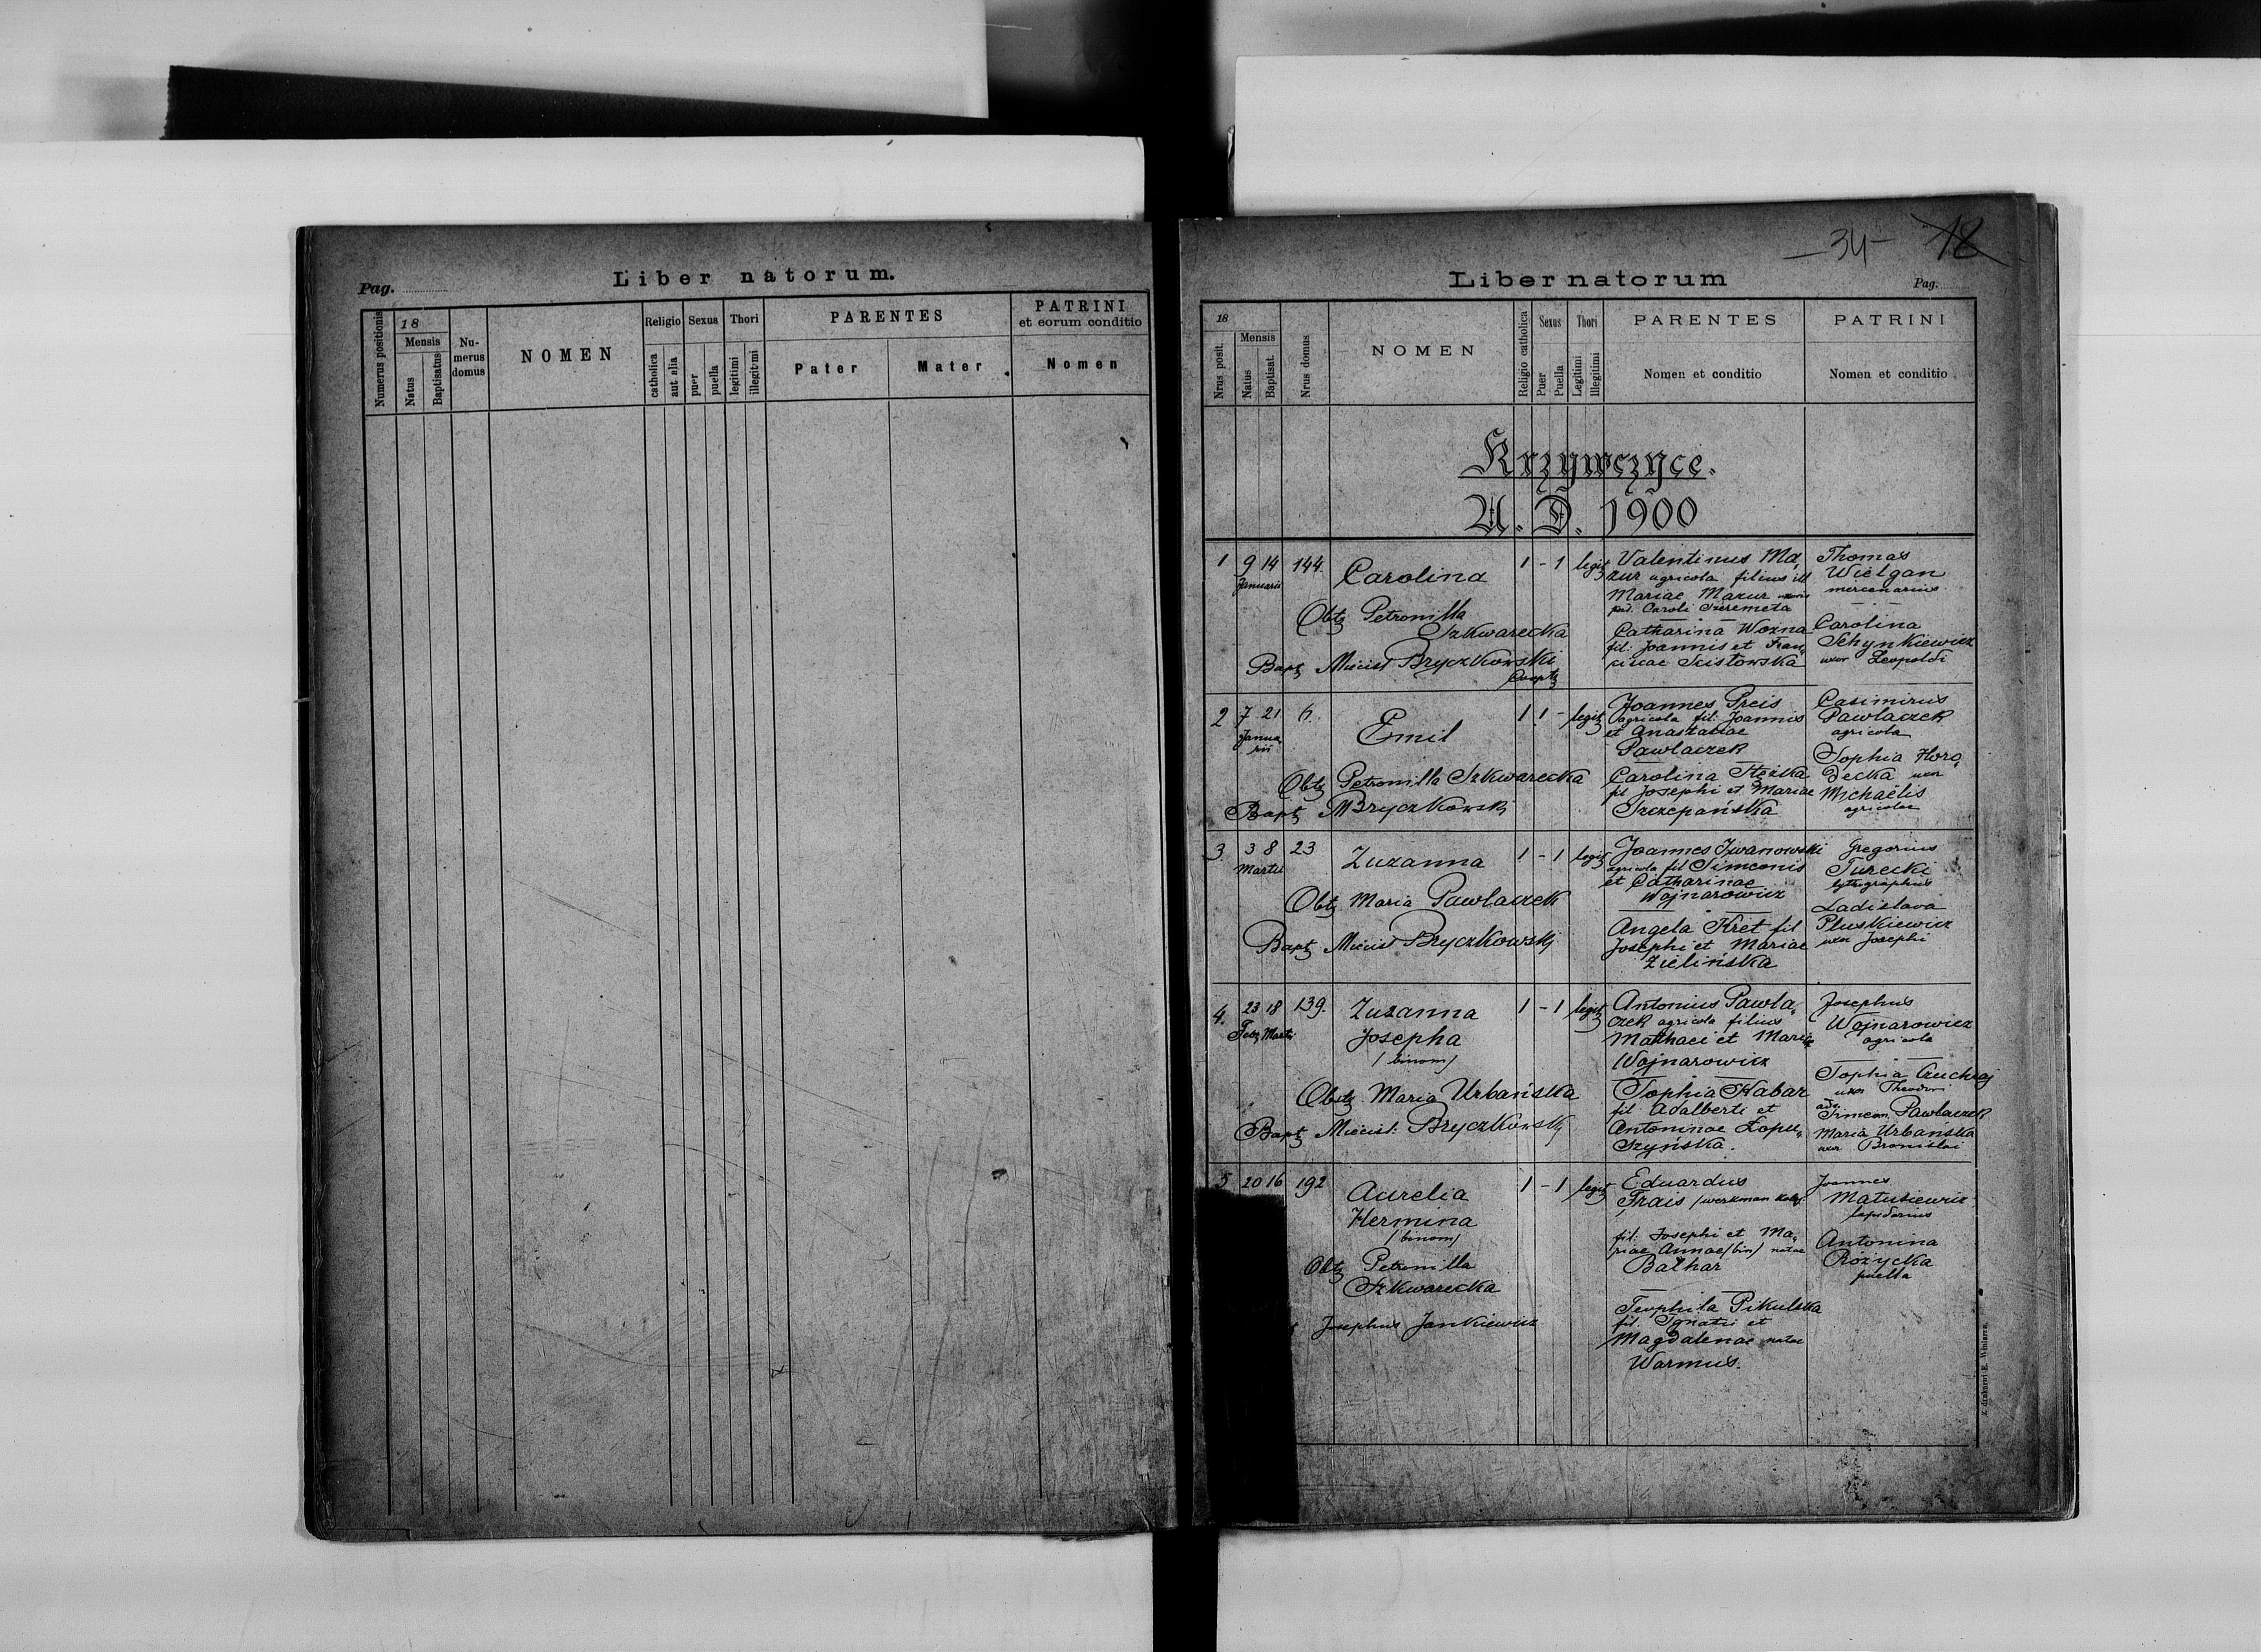 Pag.
Liber natorum.
Numerus positionis
18
Mensis
Natus
Baptisatus
Nu-
merus
domus
NOMEN
Religio
catholica
aut alia
Sexus
puer
puella
Thori
legitimi
illegitimi
PARENTES
Pater
Mater
PATRINI
et eorum conditio
Nomen
—34—
18
Liber natorum
Pag.
Nrus posit.
18
Mensis
Natus
Baptisat.
Nrus domus
NOMEN
Religio catholica
Sexus
Puer
Puella
Thori
Legitimi
Illegitimi
PARENTES
Nomen et conditio
PATRINI
Nomen et conditio
Krzywczyce.
A. D. 1900
1 9 14 144
Januarii
Carolina
1 - 1 legit
Obtx Petronilla
Szkwarecka
Bapt Miecisl Bryczkowski
Cooptr
Valentinus Ma„
zur agricola filius ill
Mariae Mazur
Caroli Szeremeta
Catharina Wozna
fil. Joannis et Fran„
ciscae Scistowska
Thomas
Wielgan
mercenarius
Carolina
Schynkiewicz
uxor Leopoldi
2 7 21 6
Janua„
rii
Emil
1 1 - legit
Obtx Petronilla Szkwarecka
Bapt M Bryczkowski
Joannes Preis
agricola fil. Joannis
et Anastasiae
Pawlaczek
Carolina Stezka
fil Josephi et Mariae
Szczepańska
Casimirus
Pawlaczek
agricola
Sophia Horo„
decka uxor
Michaëlis
agricolae
3. 3 8 23
Martii
Zuzanna
1 - 1 legit
Obtx Maria Pawlaczek
Bapt Miecisl Bryczkowski
Joannes Iwanowski
agricola fil Simeonis
et Catharinae
Wojnarowicz
Angela Kret fil
Josephi et Mariae
Zielińska
Gregorius
Turecki
lythographus
Ladislava
Pluskiewicz
uxor Josephi
4. 23 18 139.
Febr Martii
Zuzanna
Josepha
(binom)
1 - 1 legit
Obstx Maria Urbańska
Bapt Miecisl. Bryczkowski
Antonius Pawla„
czek agricola filius
Mathaei et Mariae
Wojnarowicz
Sophia Habar
fil Adalberti et
Antoninae Łopu„
szyńska.
Josephus
Wojnarowicz
agricola
Sophia Czuchraj
uxor Theodori
Simeon Pawlaczek
Maria Urbańska
uxor Bronislai
5 20 16 192
Aurelia
Hermina
(binom)
1 - 1 legit
Obtx Petronilla
Szkwarecka
Josephus Jankiewicz
Eduardus
Frais (werkman kolej.
fil. Josephi et Ma„
riae Annae (bin) natae
Balhar
Teophila Pikulska
fil. Ignatii et
Magdalenae natae
Warmus.
Joannes
Matusiewicz
lapidarius
Antonina
Różycka
puella
Z drukarni E. Winiarza.